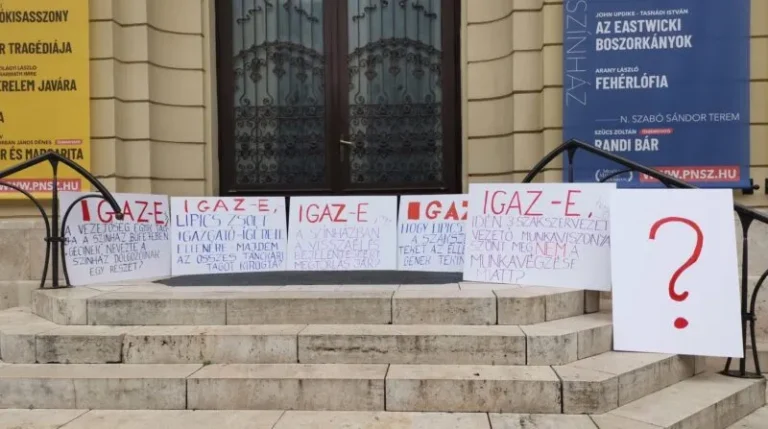 ÓKISASSZONY
TRAGÉDIÁJA
ERELEM JAVÁRA
R ÉS MARGARITA
WWW.PNSZ.HU
SZÍNHÁZ
JOHN UPDIKE - TASNÁDI ISTVÁN
AZ EASTWICKI
BOSZORKÁNYOK
ARANY LÁSZLÓ
FEHÉRLÓFIA
N. SZABÓ SÁNDOR TEREM
SZŰCS ZOLTÁN
RANDI BÁR
WWW.PNSZ.HU
IGAZ-E,
A VEZETŐSÉG EGYIK TAG-
JA A SZÍNHÁZ BÜFÉJÉBEN
NEVEZTE A
SZÍNHÁZ DOLGOZÓINAK
EGY RÉSZÉT?
IGAZ-E,
LIPICS ZSOLT
IGAZGATÓ ÍGÉRETE
ELLENÉRE MAJDNEM
AZ ÖSSZES TÁNCKARI
TAGOT KIRÚGTA?
IGAZ-E,
A SZÍNHÁZBAN
A VISSZAÉLÉS
IGAZ
HOGY LIPICS
A SZAKSZ
TEKET AZ ELL
GÉNEK TEKIN
IGAZ-E,
IDÉN 3 SZAKSZERVEZETI
VEZETŐ MUNKAVISZONYA
SZŰNT MEG NEM A
MUNKAVÉGZÉSE
MIATT?
?